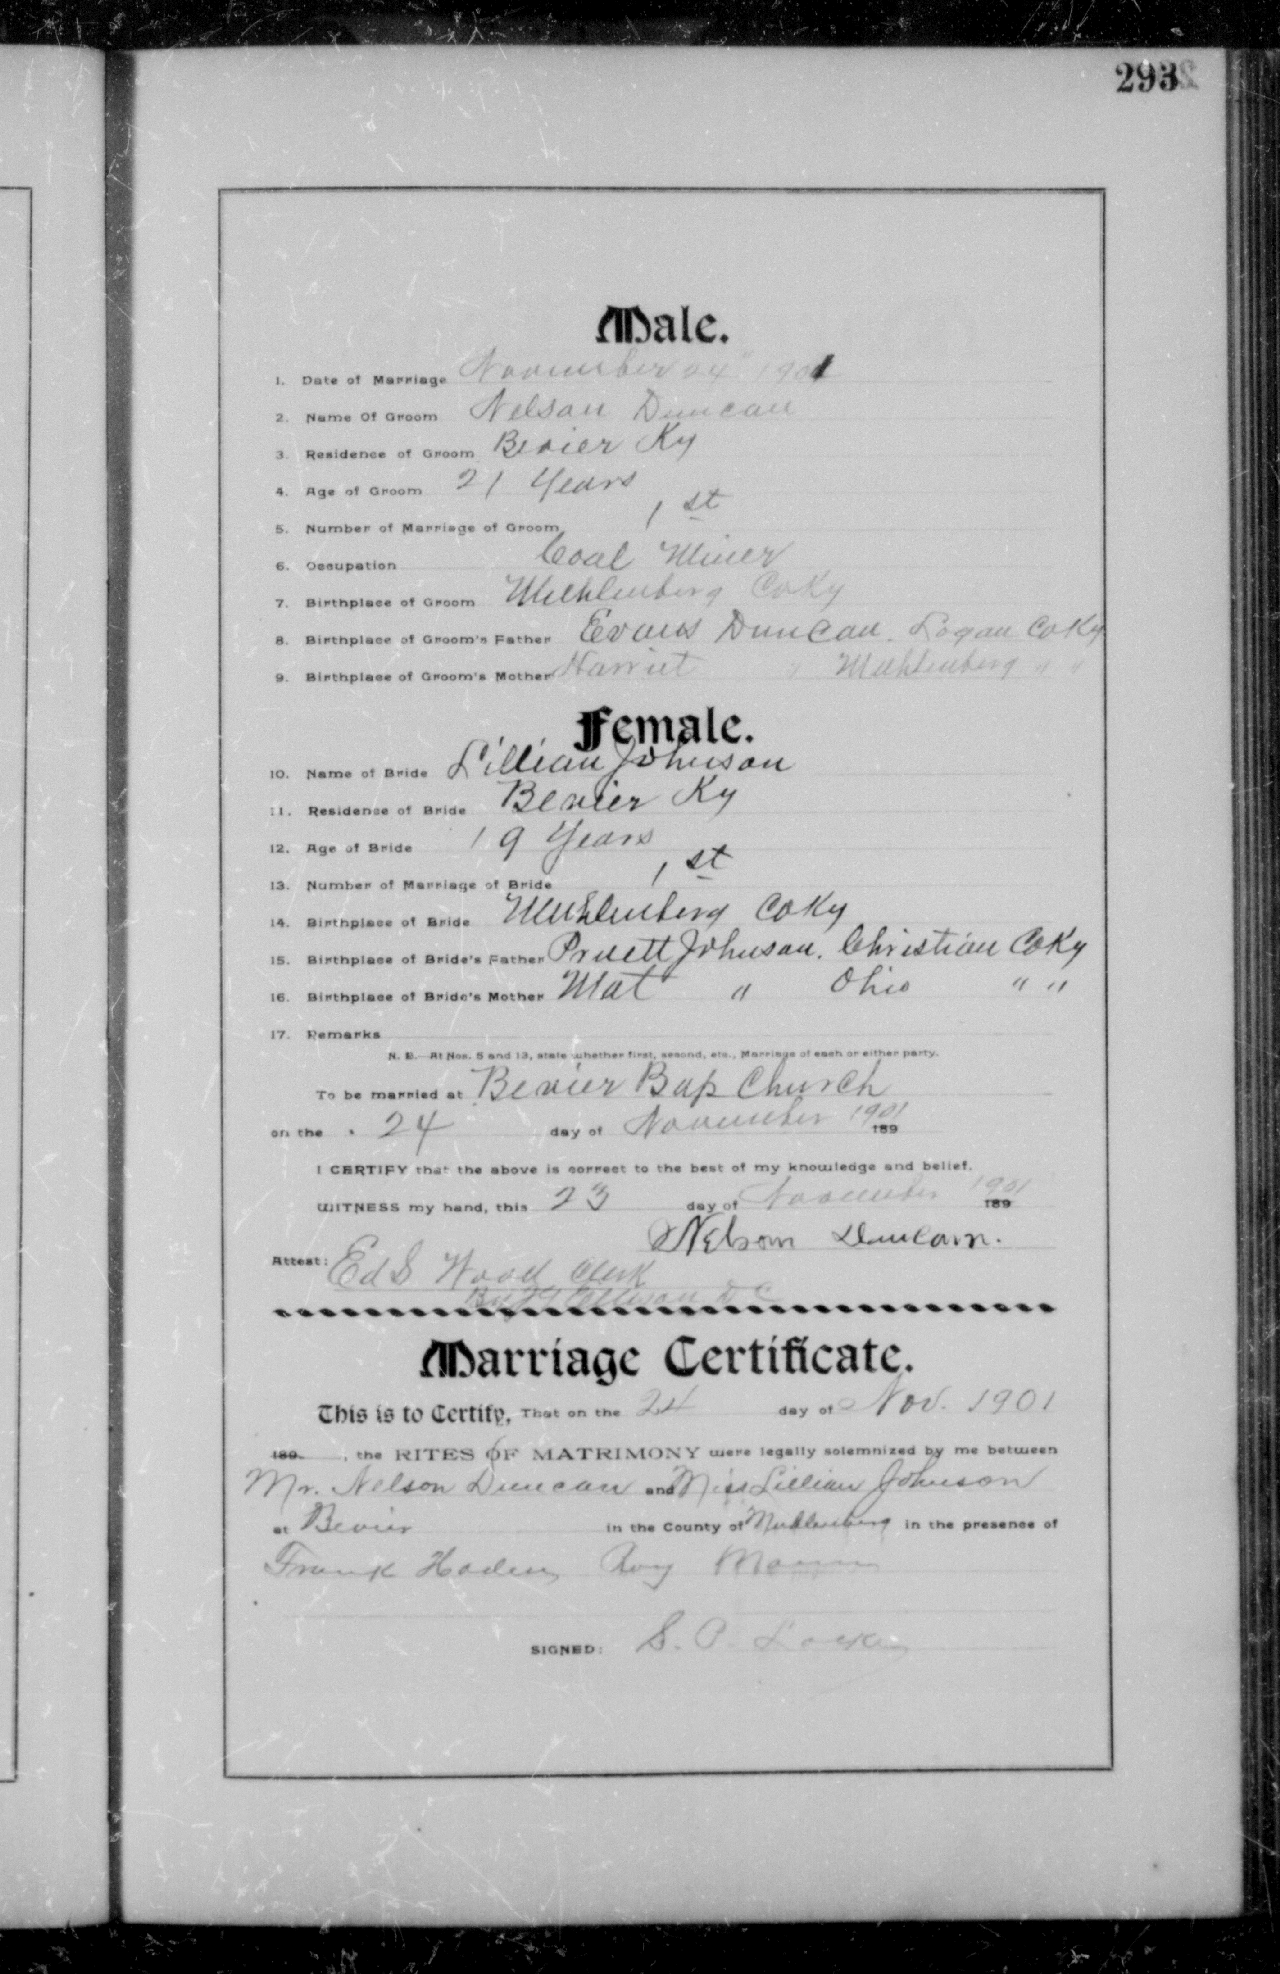 293
Male.
1. Date of Marriage November 24" 1901
2. Name Of Groom Nelson Duncan
3. Residence of Groom Bevier Ky
4. Age of Groom 21 Years
5. Number of Marriage of Groom 1st
6. Occupation Coal Miner
7. Birthplace of Groom Muhlenberg Co Ky
8. Birthplace of Groom's Father Evans Duncan. Logan Co Ky
9. Birthplace of Groom's Mother Harriet " Muhlenberg " "
Female.
10. Name of Bride Lillian Johnson
11. Residence of Bride Bevier Ky
12. Age of Bride 19 Years
13. Number of Marriage of Bride 1st
14. Birthplace of Bride Muhlenberg Co Ky
15. Birthplace of Bride's Father Pruett Johnson. Christian Co Ky
16. Birthplace of Bride's Mother Mat " Ohio " "
17. Remarks
N. B.—At Nos. 5 and 13, state whether first, second, etc., Marriage of each or either party.
To be married at Bevier Bap Church
on the 24 day of November 1901 189
I CERTIFY that the above is correct to the best of my knowledge and belief.
WITNESS my hand, this 23 day of November 1901 189
Nelson Duncan.
Attest: Ed S Wood Clerk
By D C
Marriage Certificate.
This is to Certify, That on the 24 day of Nov. 1901
189 , the RITES OF MATRIMONY were legally solemnized by me between
Mr. Nelson Duncan and Miss Lillian Johnson
at Bevier in the County of Muhlenberg in the presence of
Frank Roy
SIGNED: S. P.